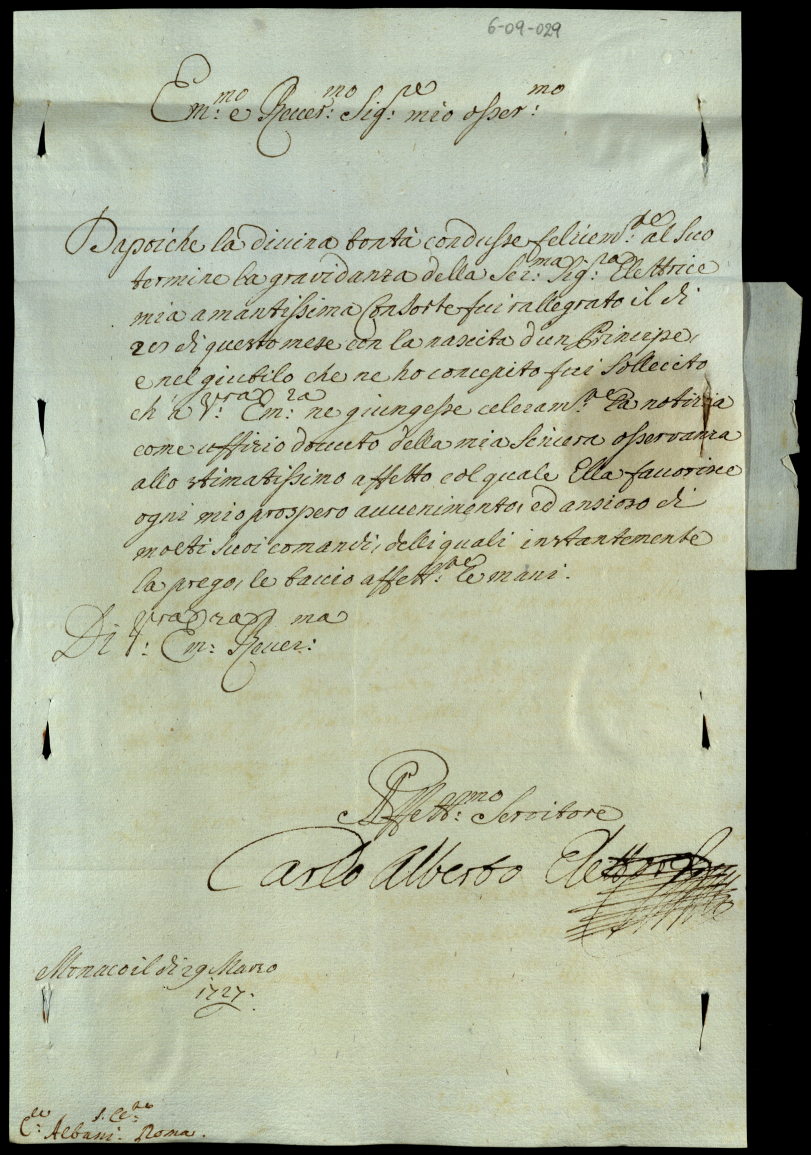 6-09-029
Em:mo e Reuer:mo Sig:re mio osser:mo
Dapoiche la diuina bontà condusse felicem:te al suo
termine la grauidanza della Ser:ma Sig:ra Elettrice
mia amantissima Consorte fui rallegrato il di
di questo mese con la nascita d'un Principe,
e nel giubilo che ne ho concepito fui sollecito
ch'a V:ra Em:za ne giungesse celeram:te la notizia
come uffizio douuto della mia sincera osseruanza
allo stimatissimo affetto col quale Ella fauorisce
ogni mio prospero auuenimento, ed ansioso di
molti suoi comandi, delli quali instantemente
la prego, le baccio affett:te le mani.
Di V:ra Em:za Reuer:ma
Affett:mo Seruitore
Carlo Alberto Elettore
Monaco il di 29 Marzo
1727.
C:le Albani. Roma.